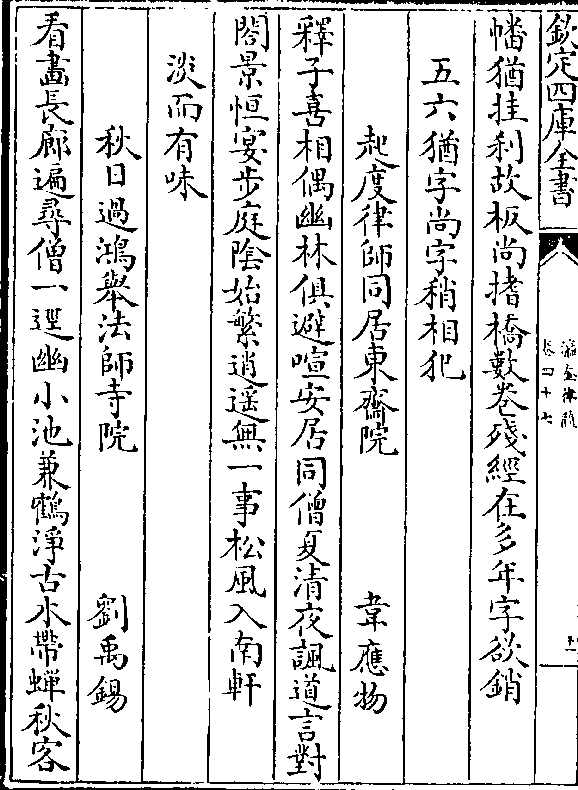 欽定四庫全書
瀛奎律髓
卷四十七
幡猶挂刹故板尚揩橋數卷殘經在多年字欲銷
五六猶字尚字稍相犯
起度律師同居東齋院 韋應物
釋子喜相偶幽林俱避喧安居同僧夏清夜諷道言對
閣景恒宴步庭陰始繁逍遥無一事松風入南軒
淡而有味
秋日過鴻舉法師寺院 劉禹錫
看畫長廊遍尋僧一逕幽小池兼鶴淨古木帶蟬秋客